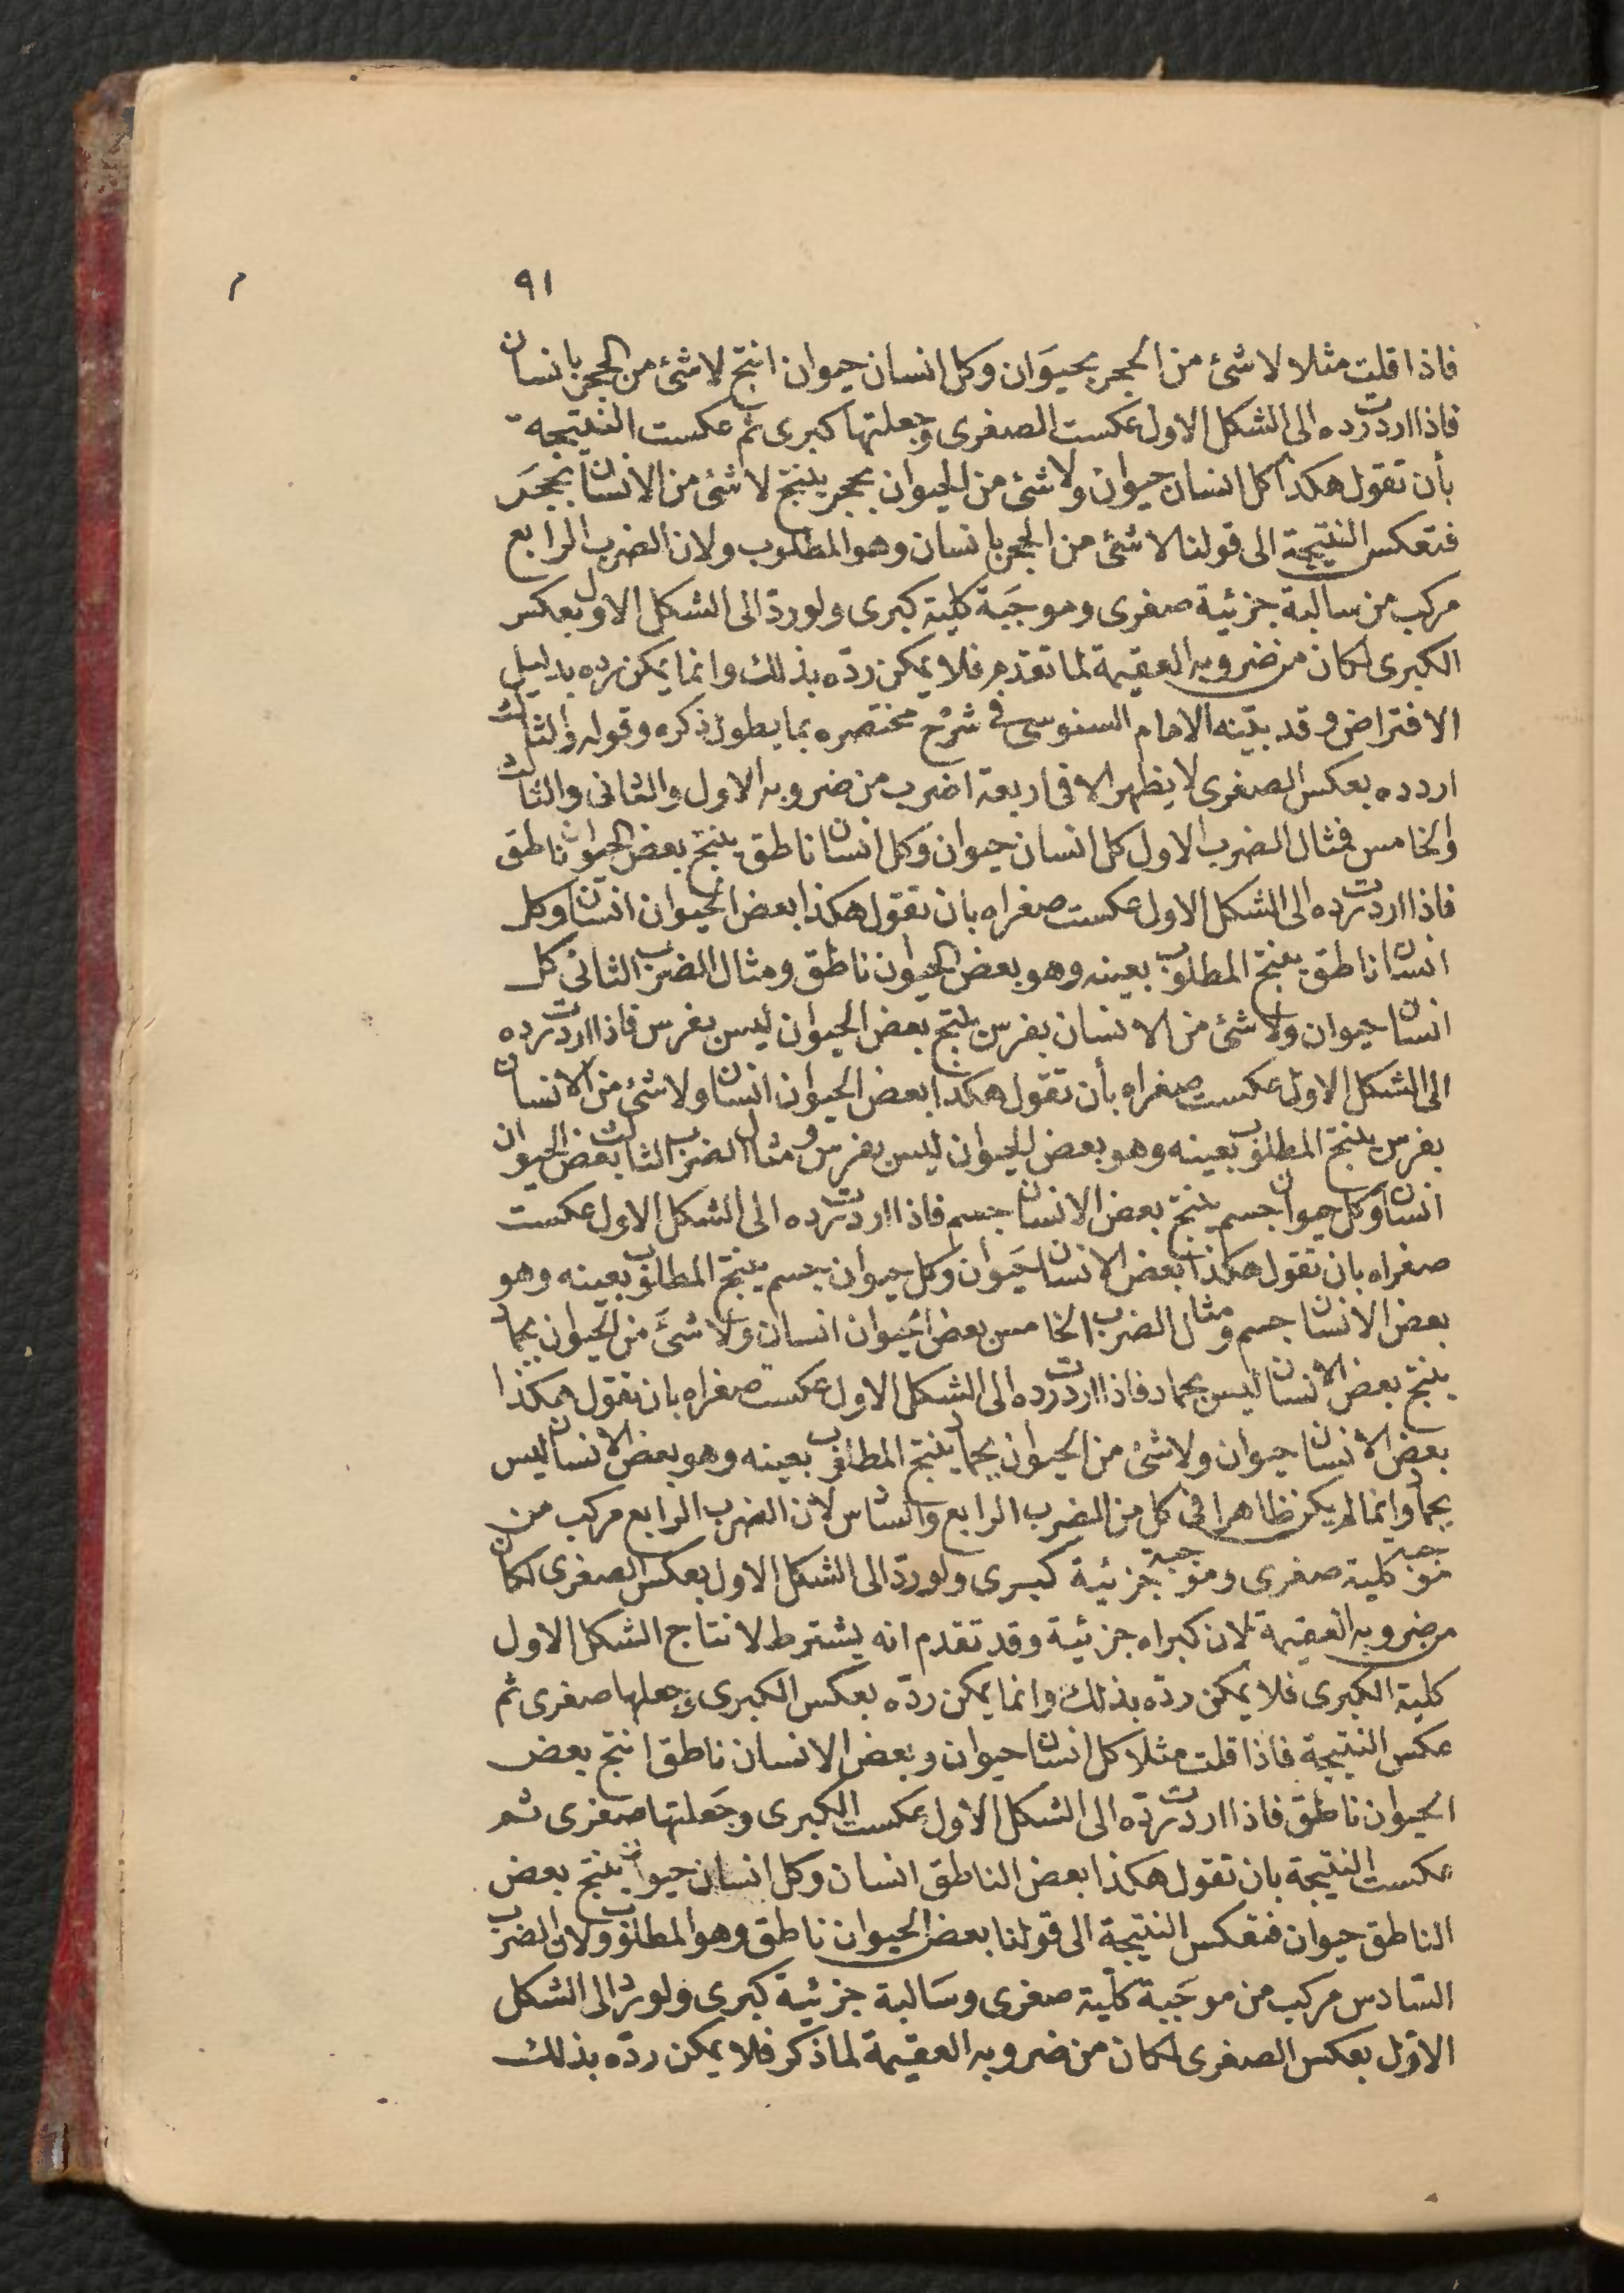 ٩١
فاذا قلت مثلا لا شئ من الحجر بحيوَان وكل انسان حيوان انتج لا شئ من الحجر بانسان
فاذا اردت رده الى الشكل الاول عكست الصغرى وجعلتها كبرى ثم عكست النتيجة
بأن تقول هكذا كل انسان حيوان ولا شئ من الحيوان بحجر ينتج لا شئ من الانسان بحجَر
فتعكس النتيجة الى قولنا لا شئ من الحجر بانسان وهو المطلوب ولان الضرب الرابع
مركب من سالبة جزئية صغرى وموجَبة كلية كبرى ولو ردّ الى الشكل الاول بعكس
الكبرى لكان من ضروبه العقيمة لما تقدم فلا يمكن ردّه بذلك وانما يمكن رده بدليل
الافتراض وقد بيّنه الامام السنوسى فى شرح مختصره بما يطول ذكره وقوله والثالث
اردده بعكس الصغرى لا يظهر الا فى اربعة اضرب من ضروبه الاول والثانى والثالث
والخامس فمثال الضرب الاول كل انسان حيوان وكل انسان ناطق ينتج بعض الحيوان ناطق
فاذا اردت رده الى الشكل الاول عكست صغراه بان تقول هكذا بعض الحيوان انسان وكل
انسان ناطق ينتج المطلوب بعينه وهو بعض الحيوان ناطق ومثال الضرب الثانى كل
انسان حيوان ولا شئ من الانسان بفرس ينتج بعض الحيوان ليس بفرس فاذا اردت رده
الى الشكل الاول عكست صغراه بأن تقول هكذا بعض الحيوان انسان ولا شئ من الانسان
بفرس ينتج المطلوب بعينه وهو بعض الحيوان ليس بفرس ومثال الضرب الثالث بعض الحيوان
انسان وكل حيوان جسم ينتج بعض الانسان جسم فاذا اردت رده الى الشكل الاول عكست
صغراه بان تقول هكذا بعض الانسان حيَوان وكل حيوان جسم ينتج المطلوب بعينه وهو
بعض الانسان جسم ومثال الضرب الخامس بعض الحيوان انسان ولا شئ من الحيوان بجماد
ينتج بعض الانسان ليس بجماد فاذا اردت رده الى الشكل الاول عكست صغراه بان تقول هكذا
بعض الانسان حيوان ولا شئ من الحيوان بجماد ينتج المطلوب بعينه وهو بعض الانسان ليس
بجماد وانما لم يكن ظاهرا فى كل من الضرب الرابع والسادس لان الضرب الرابع مركب من
موجبة كلية صغرى وموجبة جزئية كبرى ولو ردّ الى الشكل الاول بعكس الصغرى لكان
من ضروبه العقيمة لان كبراه جزئية وقد تقدم انه يشترط لانتاج الشكل الاول
كلية الكبرى فلا يمكن ردّه بذلك وانما يمكن ردّه بعكس الكبرى وجعلها صغرى ثم
عكس النتيجة فاذا قلت مثلا كل انسان حيوان وبعض الانسان ناطق انتج بعض
الحيوان ناطق فاذا اردت ردّه الى الشكل الاول عكست الكبرى وجَعلتها صغرى ثم
عكست النتيجة بان تقول هكذا بعض الناطق انسان وكل انسان حيوان ينتج بعض
الناطق حيوان فتعكس النتيجة الى قولنا بعض الحيوان ناطق وهو المطلوب ولان الضرب
السّادس مركب من موجَبة كلّية صغرى وسَالبة جزئية كبرى ولو ردّ الى الشكل
الاوّل بعكس الصغرى لكان من ضروبه العقيمة لما ذكر فلا يمكن ردّه بذلك